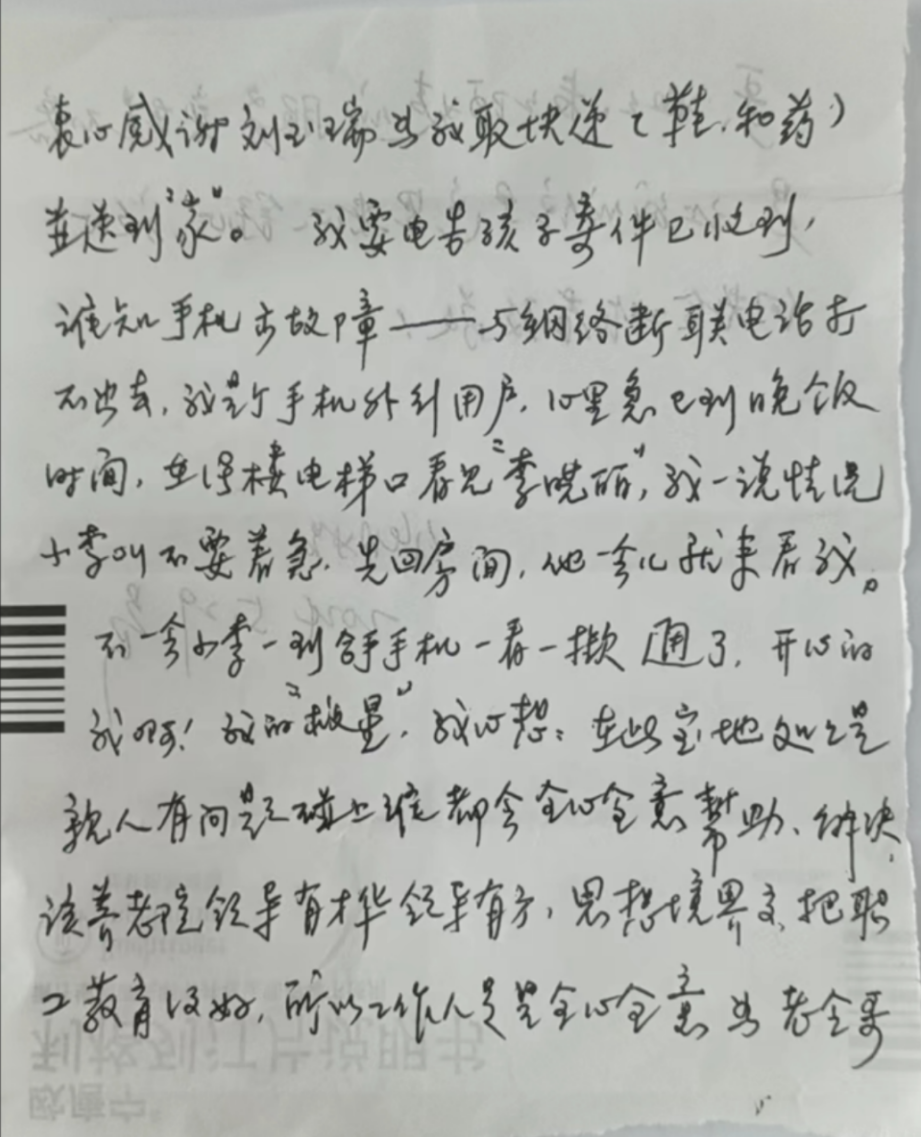 衷心感谢刘玉瑞为我取快递(鞋.和药)
并送到"家"。 我要电告孩子寄件已收到,
谁知手机出故障——与网络断联电话打
不出去,我是个手机外行用户.心里急已到晚饭
时间,在得楼电梯口看见"李晓丽",我一说情况
小李叫不要着急.先回房间,他一会儿就来看我。
不一会小李一到拿手手机一看一揿通了.开心的
我啊!我的"救星".我心想:在此宝地处处是
亲人有问题碰上谁都会全心全意帮助、解决,
该养老院领导有才华领导有方,思想境界高.把职
工教育得好,所以工作人员是全心全意为老全哥
利格列汀片说明书
欧唐宁